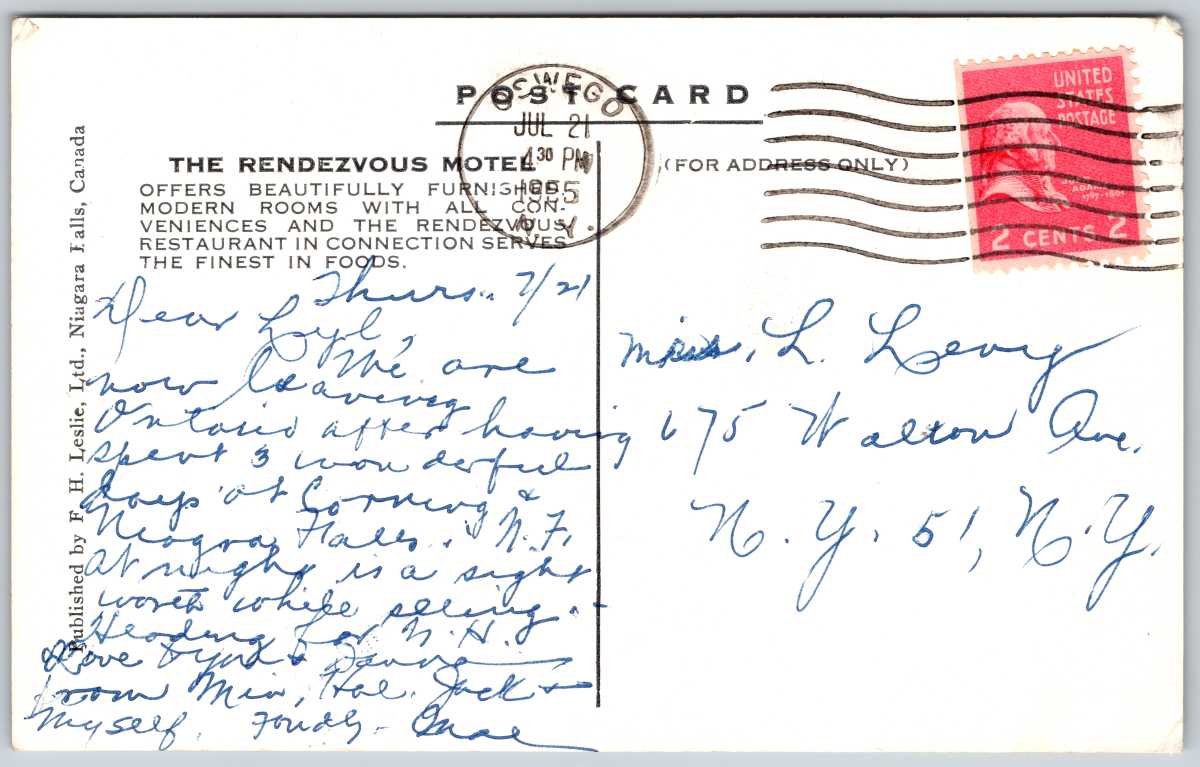 POST CARD
OSWEGO
JUL 21
4 30 PM
1955
N.Y.
UNITED
STATES
POSTAGE
JOHN
ADAMS
2 CENTS 2
THE RENDEZVOUS MOTEL
OFFERS BEAUTIFULLY FURNISHED,
MODERN ROOMS WITH ALL CON-
VENIENCES AND THE RENDEZVOUS
RESTAURANT IN CONNECTION SERVES
THE FINEST IN FOODS.
(FOR ADDRESS ONLY)
Published by F. H. Leslie, Ltd., Niagara Falls, Canada
Thurs. 7/21
Dear Lyl,
We are
now leaving
Ontario after having
spent 3 wonderful
days at Corning &
Niagra Falls. N.F.
at night is a sight
worth while seeing.
Heading for N.H.
Love to you &
from Min, Hal, Jack &
Myself. Fondly - Mae
Miss. L. Levy
675 Walton Ave.
N.Y. 51, N.Y.